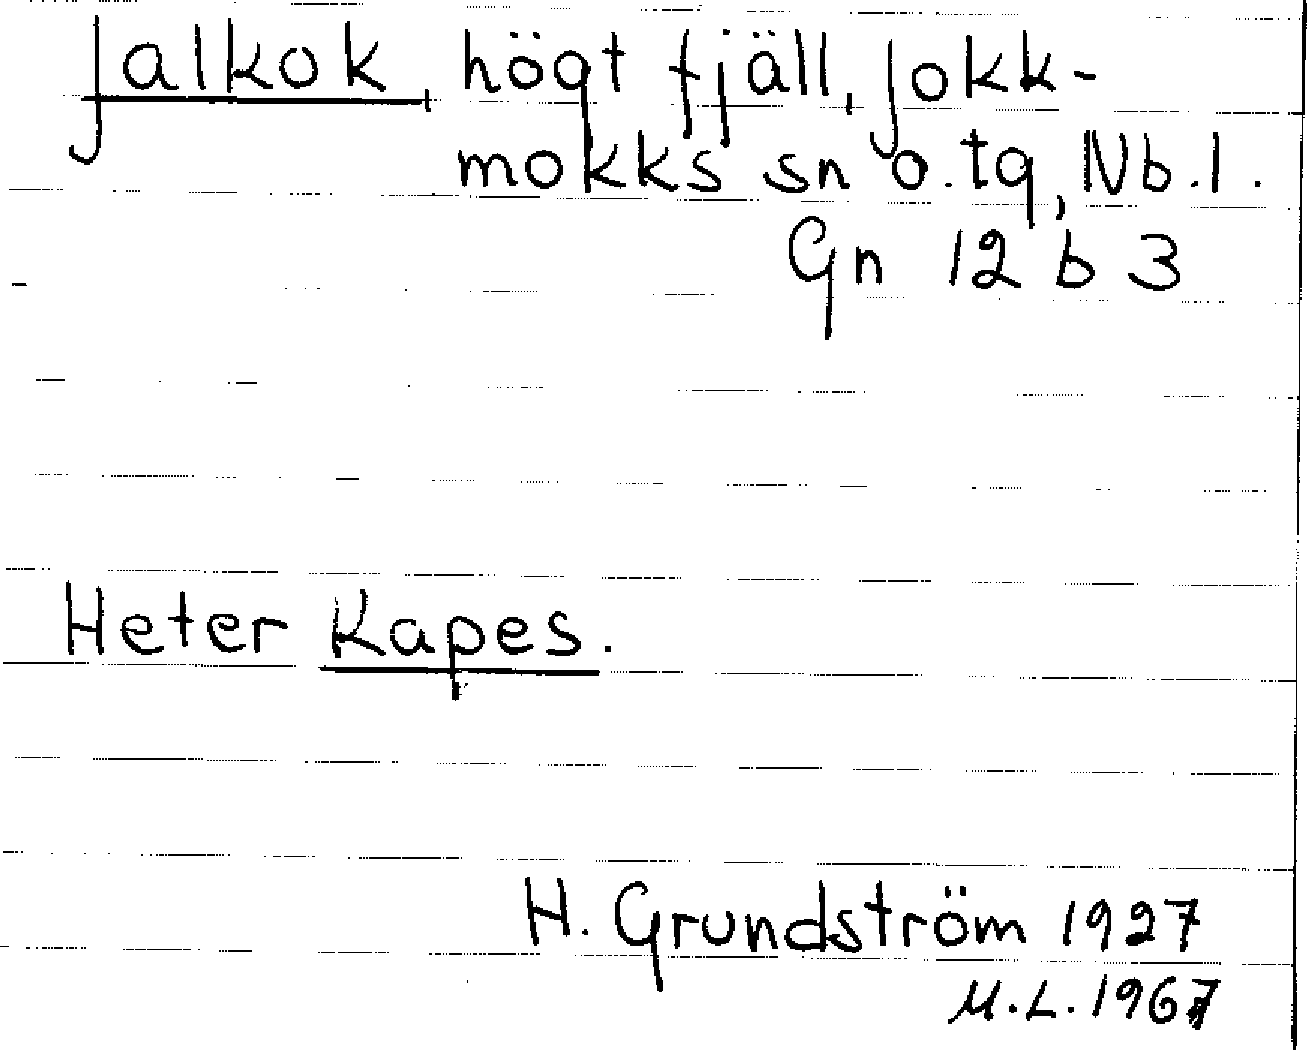 Jalkok, högt fjäll, Jokk-
mokks sn o. tg, Nb. l.
Gn 12 b 3
Heter Kapes.
H. Grundström 1927
M.L. 1967